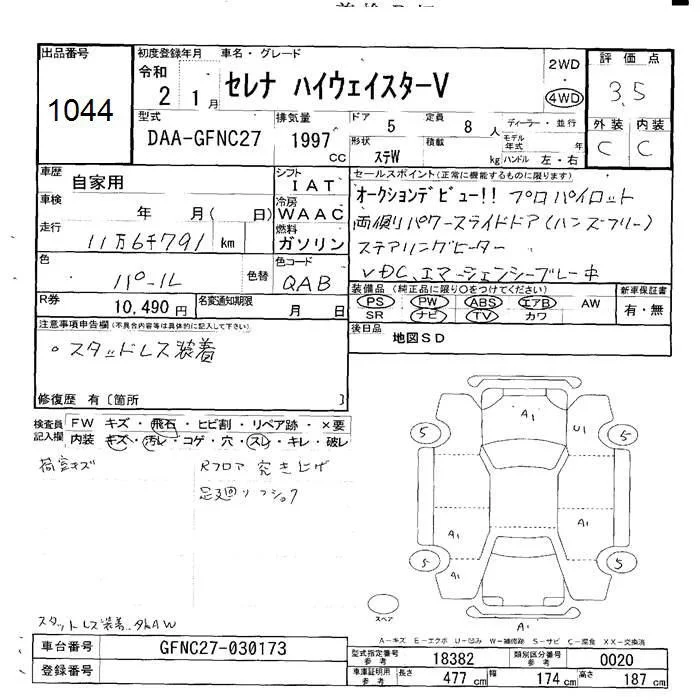 出品番号
1044
初度登録年月
令和
2 1月
車名・グレード
セレナ ハイウェイスターV
2WD
4WD
評価点
3.5
外装 内装
C C
型式
DAA-GFNC27
排気量
1997
CC
ドア 5
定員 8人
形状 ステW
積載 kg
ディーラー・並行
モデル年式 年
ハンドル 左・右
車歴
自家用
シフト
IAT
車検
年 月( 日)
冷房
WAAC
走行
11万6千791 km
燃料
ガソリン
色
パール
色替
色コード
QAB
R券
10,490円
名変通知期限
月 日
セールスポイント(正常に機能するものに限ります)
オークションデビュー!! プロパイロット
両側パワースライドドア(ハンズフリー)
ステアリングヒーター
VDC、エマージェンシーブレーキ
装備品(純正品に限り○をつけてください)
PS PW ABS エアB AW
SR ナビ TV カワ
新車保証書
有・無
後日品
地図SD
注意事項申告欄(不具合内容等は具体的に記入して下さい)
○スタッドレス装着
修復歴 有〔箇所 〕
検査員記入欄
FW キズ・飛石・ヒビ割・リペア跡・×要
内装 キズ・汚レ・コゲ・穴・スレ・キレ・破レ
荷室キズ
Rフロア突き上げ
足廻りサブショウ
スタットレス装着
A1
U1
5 5
A1 A1
A1
5 5
A1
スペア
A-キズ E-エクボ U-凹み W-補修跡 S-サビ C-腐食 XX-交換済
車台番号
GFNC27-030173
登録番号
型式指定番号 参考
18382
類別区分番号 参考
0020
車庫証明用 参考
長さ 477cm
幅 174cm
高さ 187cm